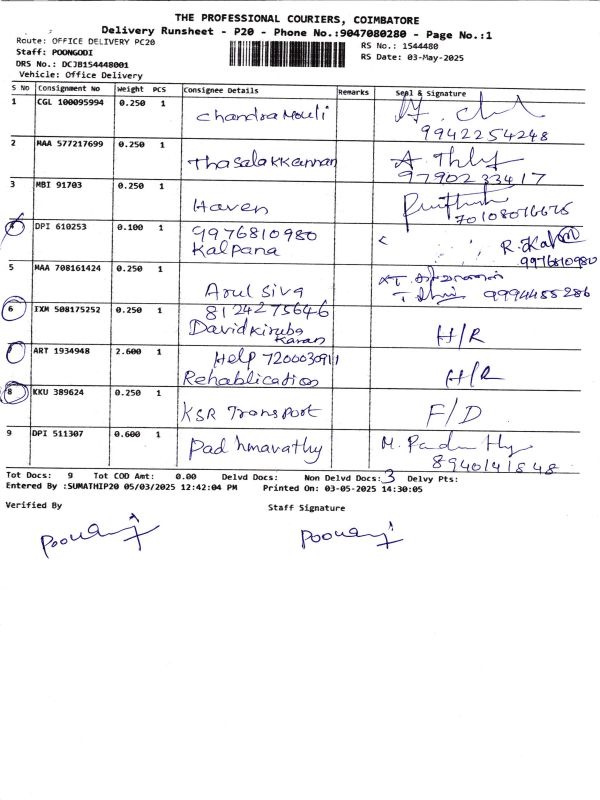 THE PROFESSIONAL COURIERS, COIMBATORE
Delivery Runsheet - P20 - Phone No.:9047080280 - Page No.:1
Route: OFFICE DELIVERY PC20
Staff: POONGODI
DRS No.: DCJB154448001
Vehicle: Office Delivery
RS No.: 1544480
RS Date: 03-May-2025
S No Consignment No Weight PCS Consignee Details Remarks Seal & Signature
1 CGL 100095994 0.250 1 Chandra Mouli
9942254248
2 MAA 577217699 0.250 1 Thasalakkannan
9790233417
3 MBI 91703 0.250 1 Haven
4 DPI 610253 0.100 1 9976810980
Kalpana
9976810980
5 MAA 708161424 0.250 1 Arul Siva
9994455286
6 IXM 508175252 0.250 1 8124275646
David Kiruba
Karan H/R
7 ART 1934948 2.600 1 Help 7200030911
Rehablication H/R
8 KKU 389624 0.250 1 KSR Transport F/D
9 DPI 511307 0.600 1 Padhmavathy
8940141848
Tot Docs: 9 Tot COD Amt: 0.00 Delvd Docs: Non Delvd Docs: 3 Delvy Pts:
Entered By :SUMATHIP20 05/03/2025 12:42:04 PM Printed On: 03-05-2025 14:30:05
Verified By Staff Signature